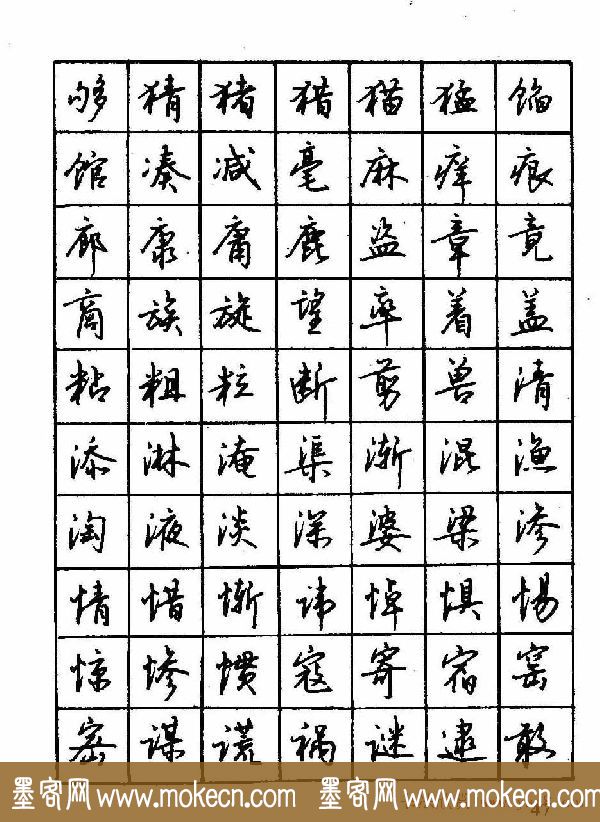 够 猜 猪 猎 猫 猛 馅
馆 凑 减 毫 麻 痒 痕
廊 康 庸 鹿 盗 章 竟
商 族 旋 望 率 着 盖
粘 粗 粒 断 剪 兽 清
添 淋 淹 渠 渐 混 渔
淘 液 淡 深 婆 梁 渗
情 惜 惭 悼 惧 惕
惊 惨 惯 寇 寄 宿 窑
密 谋 谎 祸 谜 逮 敢
墨客网 www.mokecn.com 墨客网 www.mokecn.com
47